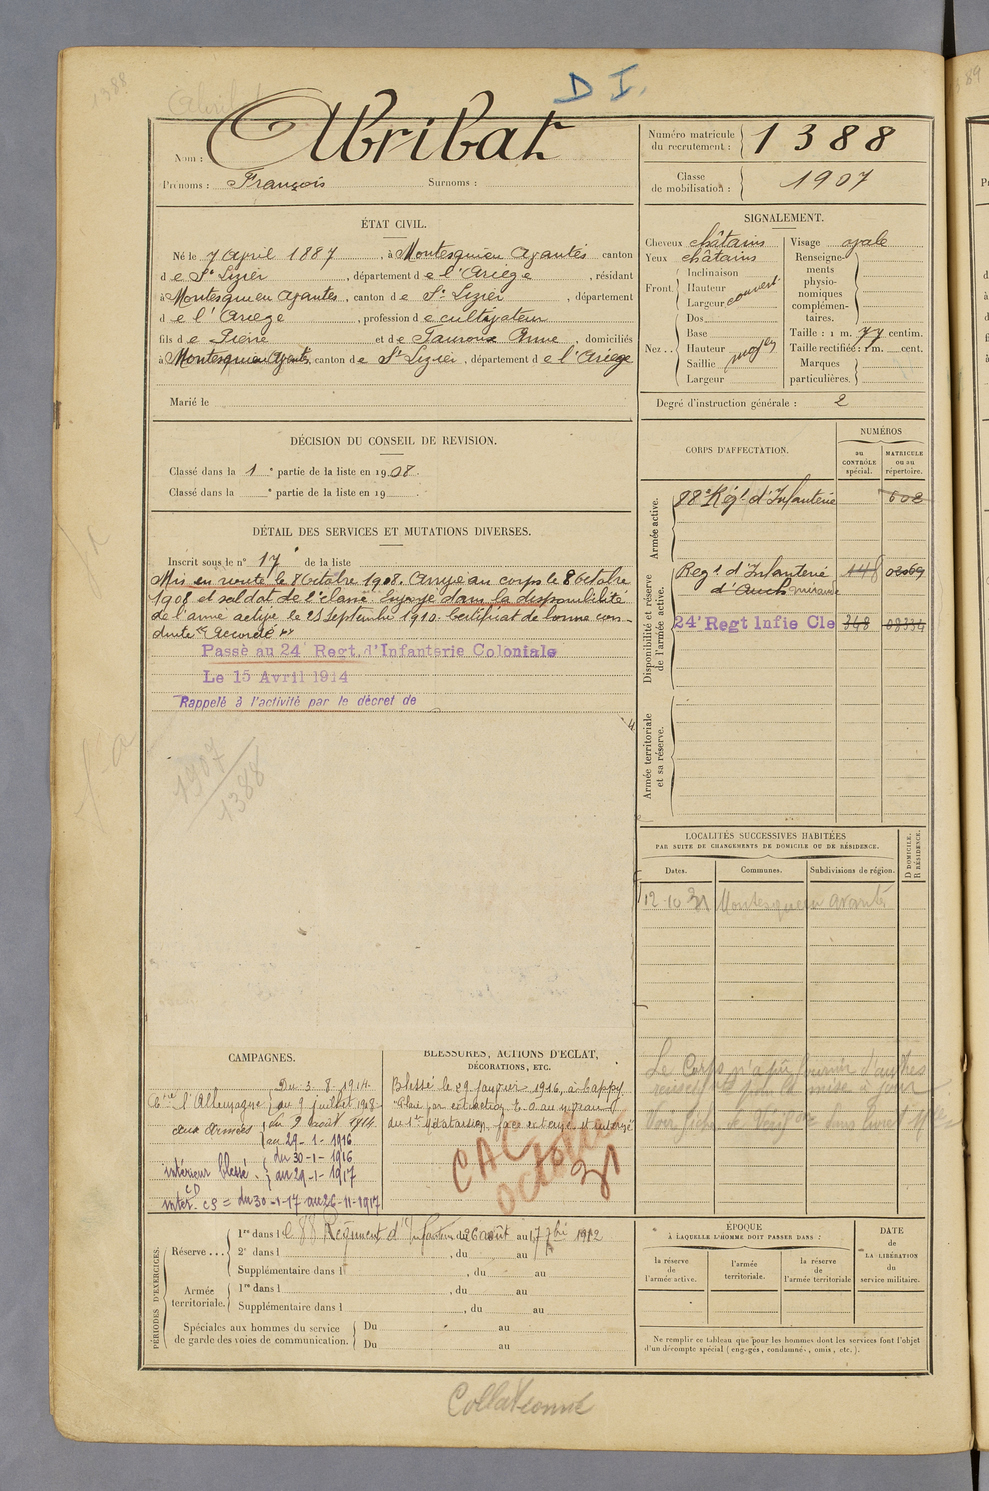 1388
D I.
Nom : Abribat
Prénoms : François Surnoms :
Numéro matricule du recrutement : 1388
Classe de mobilisation : 1907
ÉTAT CIVIL.
Né le 7 April 1887, à Montesquieu Avantés canton
de St Lizier, département de l'Ariège, résidant
à Montesquieu Avantes, canton de St Lizier, département
de l'Ariège, profession de cultivateur
fils de Pierre et de Fauroux Anne, domiciliés
à Montesquieu Avantés, canton de St Lizier, département de l'Ariège
Marié le
SIGNALEMENT.
Cheveux châtains
Yeux châtains
Front. Inclinaison
Hauteur
Largeur couvert
Nez .. Dos
Base
Hauteur moyen
Saillie
Largeur
Visage ovale
Renseignements physionomiques complémentaires.
Taille : 1 m. 77 centim.
Taille rectifiée : 1 m. cent.
Marques particulières.
Degré d'instruction générale : 2
DÉCISION DU CONSEIL DE REVISION.
Classé dans la 1e partie de la liste en 1908.
Classé dans la e partie de la liste en 19
DÉTAIL DES SERVICES ET MUTATIONS DIVERSES.
Inscrit sous le n° 17 de la liste
Mis en route le 8 Octobre 1908. Arrivé au corps le 8 Octobre
1908 et soldat de 2e classe. Envoyé dans la disponibilité
de l'armée active le 25 Septembre 1910. Certificat de bonne con-
duite "Accordé"
Passé au 24e Regt. d'Infanterie Coloniale
Le 15 Avril 1914
Rappelé à l'activité par le décret de
1907
1388
CORPS D'AFFECTATION.
NUMÉROS
au CONTRÔLE spécial.
MATRICULE ou au répertoire.
Armée active.
88e Régt d'Infanterie 608
Disponibilité et réserve de l'armée active.
Regt d'Infanterie 448
d'Auch Mirande
24e Regt Infie Cle 348 08334
Armée territoriale et sa réserve.
LOCALITÉS SUCCESSIVES HABITÉES
PAR SUITE DE CHANGEMENTS DE DOMICILE OU DE RÉSIDENCE.
Dates. Communes. Subdivisions de région.
D DOMICILE. R RÉSIDENCE.
12 10 31 Montesquieu avantés
Le Corps n'a pu fournir d'autres
CAMPAGNES.
Du 3 . 8 . 1914.
Ctre l'Allemagne au 9 juillet 1918
aux armées du 9 août 1914
au 29 - 1 - 1916
intérieur blessé. du 30 - 1 - 1916
au 29 - 1 - 1917
CD
intér. cs = du 30 - 1 - 17 au 26 - 11 - 1917
BLESSURES, ACTIONS D'ECLAT,
DÉCORATIONS, ETC.
Blessé le 29 Janvier 1916, à Cappy
CAC
octobre
31
PÉRIODES D'EXERCICES.
Réserve ... 1re dans le 88e Régiment d'Infanterie du 26 août au 17 7bre 1912
2e dans l , du au
Supplémentaire dans l , du au
Armée territoriale. 1re dans l , du au
Supplémentaire dans l , du au
Spéciales aux hommes du service de garde des voies de communication. Du au
Du au
ÉPOQUE
À LAQUELLE L'HOMME DOIT PASSER DANS :
la réserve de l'armée active.
l'armée territoriale.
la réserve de l'armée territoriale
DATE de LA LIBÉRATION du service militaire.
Ne remplir ce tableau que pour les hommes dont les services font l'objet
d'un décompte spécial (engagés, condamnés, omis, etc.).
Collationné